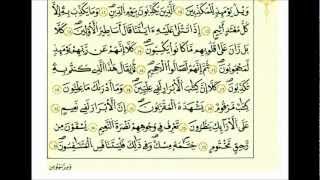 وَيْلٌ يَوْمَئِذٍ لِلْمُكَذِّبِينَ ۝ الَّذِينَ يُكَذِّبُونَ بِيَوْمِ الدِّينِ ۝ وَمَا يُكَذِّبُ بِهِ إِلَّا
كُلُّ مُعْتَدٍ أَثِيمٍ ۝ إِذَا تُتْلَىٰ عَلَيْهِ آيَاتُنَا قَالَ أَسَاطِيرُ الْأَوَّلِينَ ۝ كَلَّا
بَلْ رَانَ عَلَىٰ قُلُوبِهِمْ مَا كَانُوا يَكْسِبُونَ ۝ كَلَّا إِنَّهُمْ عَنْ رَبِّهِمْ يَوْمَئِذٍ
لَمَحْجُوبُونَ ۝ ثُمَّ إِنَّهُمْ لَصَالُو الْجَحِيمِ ۝ ثُمَّ يُقَالُ هَٰذَا الَّذِي كُنْتُمْ بِهِ
تُكَذِّبُونَ ۝ كَلَّا إِنَّ كِتَابَ الْأَبْرَارِ لَفِي عِلِّيِّينَ ۝ وَمَا أَدْرَاكَ مَا عِلِّيُّونَ ۝
كِتَابٌ مَرْقُومٌ ۝ يَشْهَدُهُ الْمُقَرَّبُونَ ۝ إِنَّ الْأَبْرَارَ لَفِي نَعِيمٍ ۝
عَلَى الْأَرَائِكِ يَنْظُرُونَ ۝ تَعْرِفُ فِي وُجُوهِهِمْ نَضْرَةَ النَّعِيمِ ۝ يُسْقَوْنَ مِنْ
رَحِيقٍ مَخْتُومٍ ۝ خِتَامُهُ مِسْكٌ وَفِي ذَٰلِكَ فَلْيَتَنَافَسِ الْمُتَنَافِسُونَ ۝